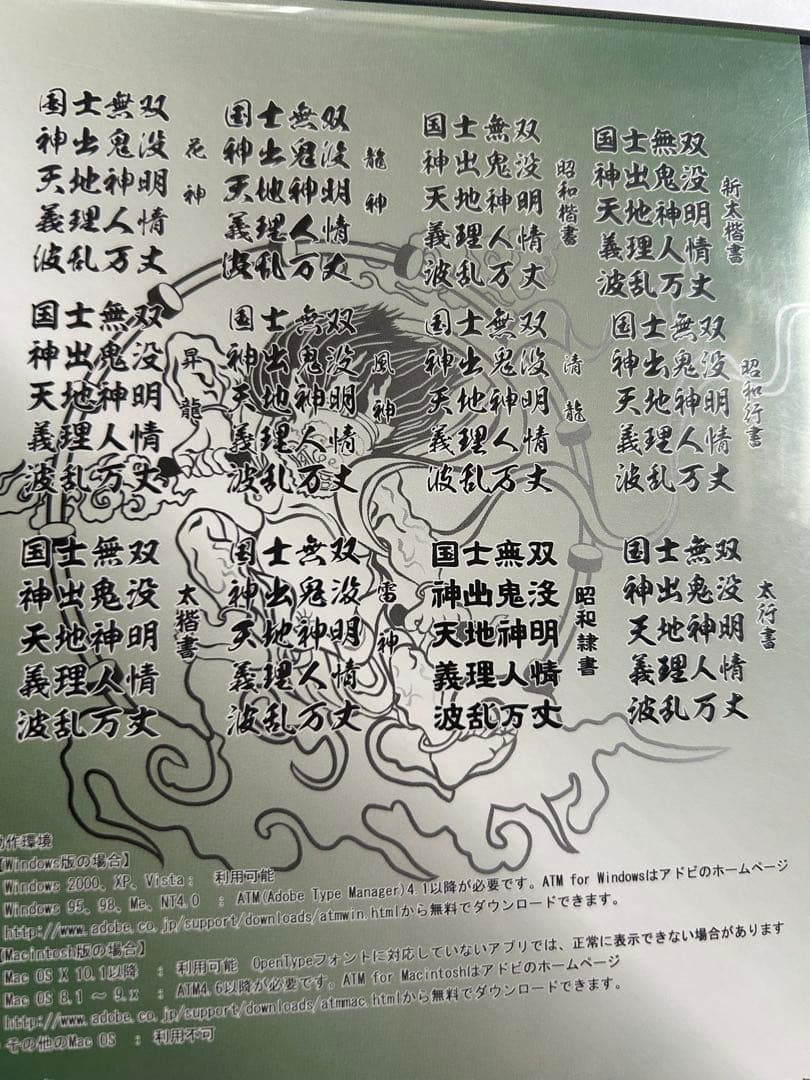 国士無双
神出鬼没
天地神明
義理人情
波乱万丈
花神
国士無双
神出鬼没
天地神明
義理人情
波乱万丈
龍神
国士無双
神出鬼没
天地神明
義理人情
波乱万丈
昭和楷書
国士無双
神出鬼没
天地神明
義理人情
波乱万丈
新太楷書
国士無双
神出鬼没
天地神明
義理人情
波乱万丈
昇龍
国士無双
神出鬼没
天地神明
義理人情
波乱万丈
風神
国士無双
神出鬼没
天地神明
義理人情
波乱万丈
清龍
国士無双
神出鬼没
天地神明
義理人情
波乱万丈
昭和行書
国士無双
神出鬼没
天地神明
義理人情
波乱万丈
太楷書
国士無双
神出鬼没
天地神明
義理人情
波乱万丈
雷神
国士無双
神出鬼没
天地神明
義理人情
波乱万丈
昭和隷書
国士無双
神出鬼没
天地神明
義理人情
波乱万丈
太行書
動作環境
【Windows版の場合】
Windows 2000、XP、Vista： 利用可能
Windows 95、98、Me、NT4.0 ： ATM(Adobe Type Manager)4.1以降が必要です。ATM for Windowsはアドビのホームページ
http://www.adobe.co.jp/support/downloads/atmwin.htmlから無料でダウンロードできます。
【Macintosh版の場合】
Mac OS X 10.1以降 ： 利用可能 OpenTypeフォントに対応していないアプリでは、正常に表示できない場合があります
Mac OS 8.1 ～ 9.x ： ATM4.6以降が必要です。ATM for Macintoshはアドビのホームページ
http://www.adobe.co.jp/support/downloads/atmmac.htmlから無料でダウンロードできます。
その他のMac OS ： 利用不可